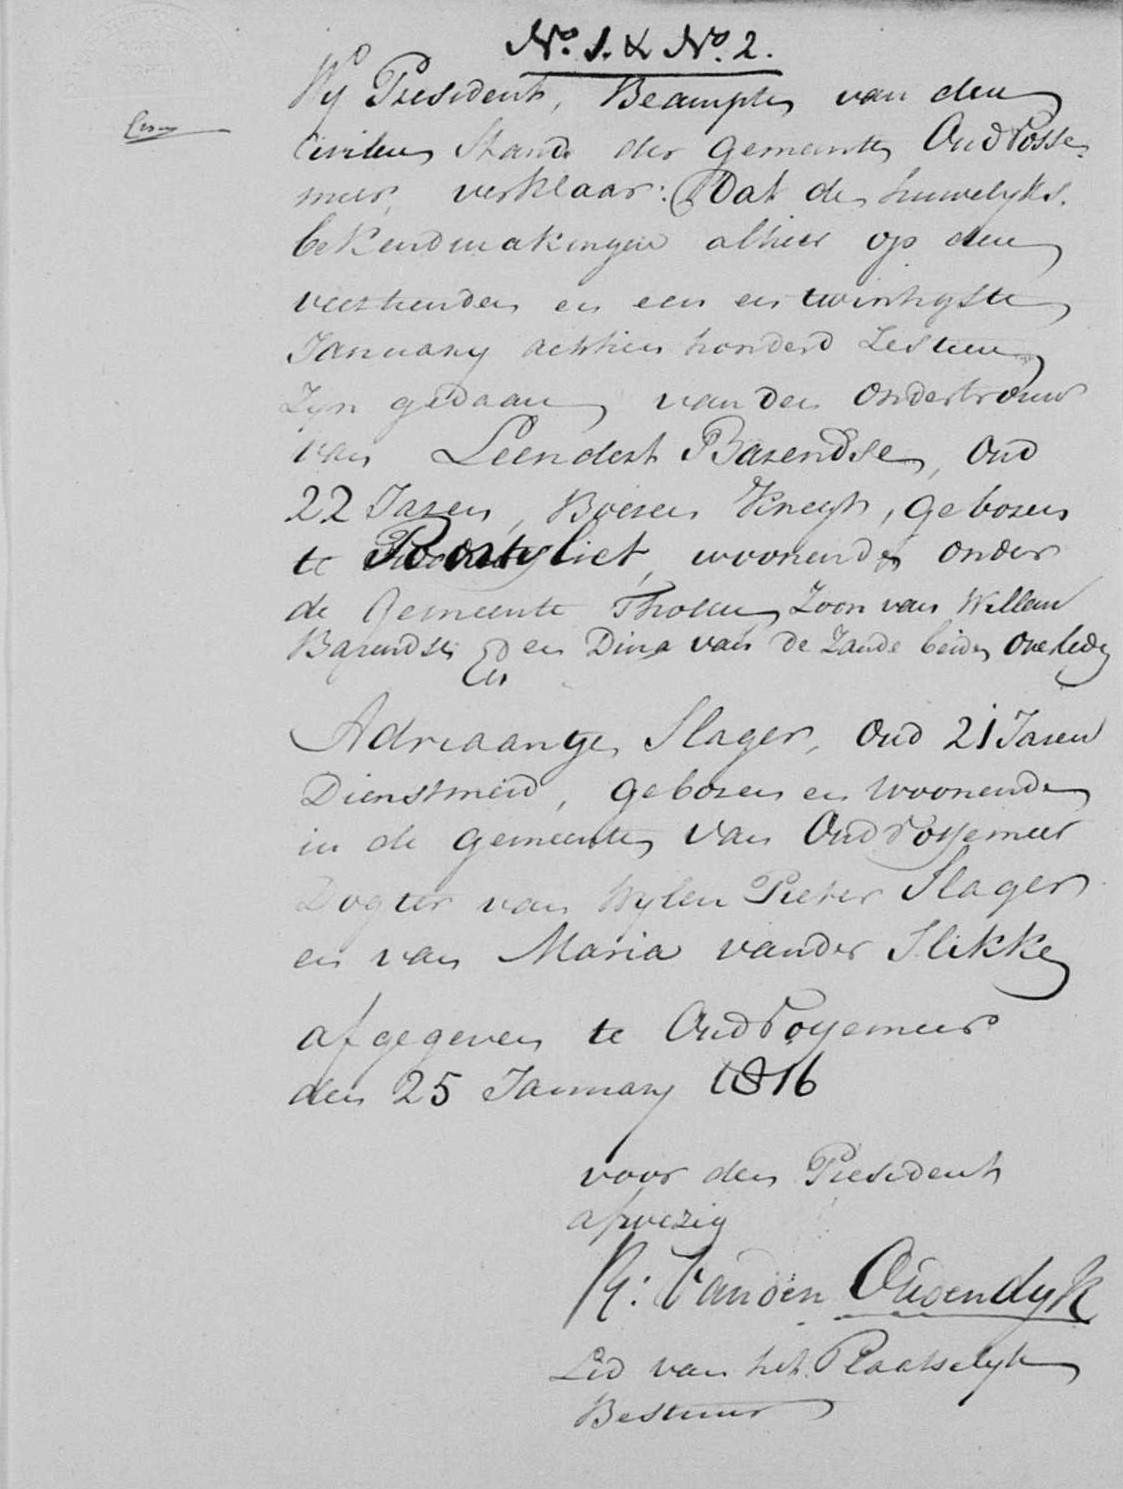 No. 1. & No. 2.
Wij President, Beampte van den
Civilen Stand der Gemeente Oud Vosse-
meer, verklaar: Dat de huwelijks-
bekendmakingen alhier op den
veertienden en een en twintigste
January achtien honderd Zestien
Zyn gedaan van den Ondertrouw
van Leendert Barendse, Oud
22 Jaren, Boeren Knegt, geboren
te Poortvliet, woonende onder
de Gemeente Tholen, Zoon van Willem
Barendse en Dina van de Zande beide overleden
En
Adriaantje Slager, Oud 21 Jaren
Dienstmeid, geboren en Woonende
in de Gemeente van Oud Vossemeer
Dogter van Wylen Pieter Slager
en van Maria vander Slikke
afgegeven te Oud Vossemeer
den 25 January 1816
voor den President
afwezig
Vanden Oudendyk
Lid van het Plaatselyk
Bestuur